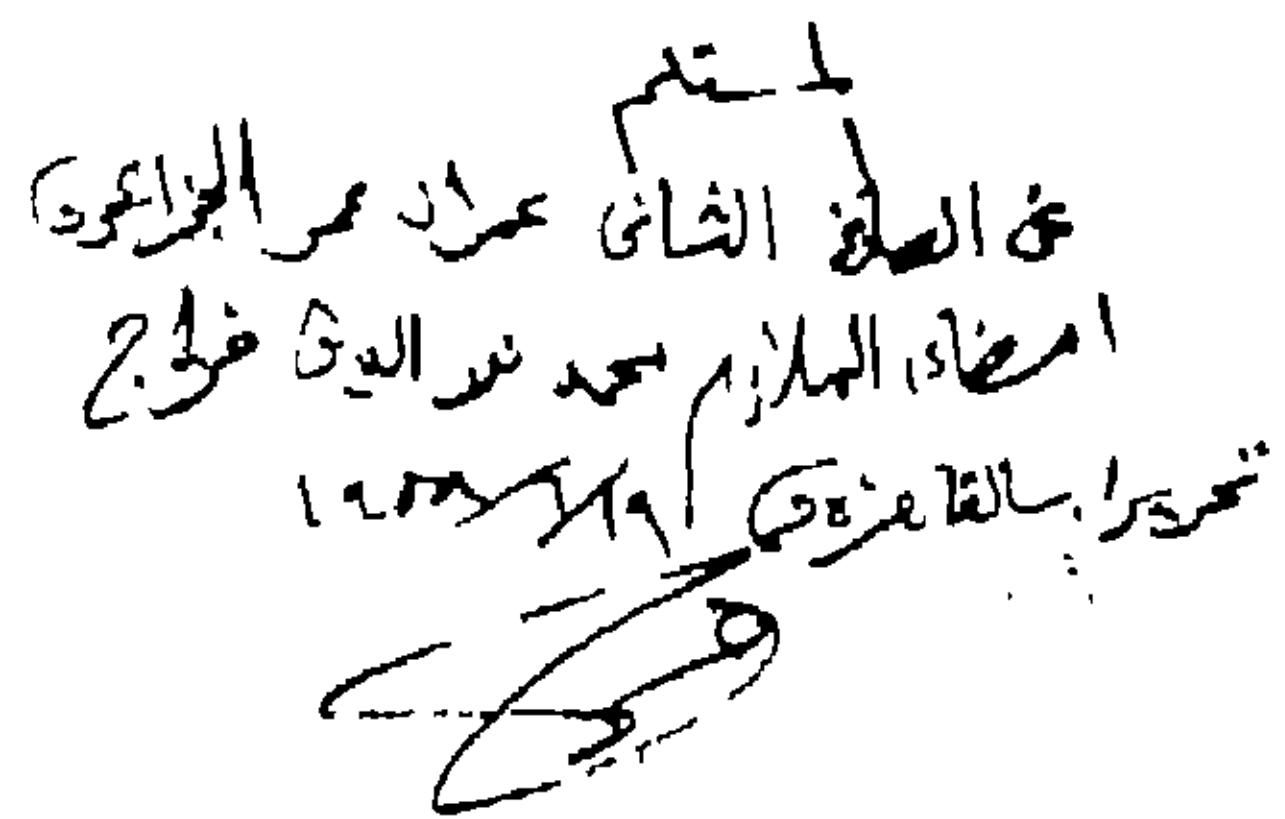 المستلم
عن الصاغ الثانى عمران عمر الجزائرى
امضاء الملازم محمد نور الدين فراج
تحريرا بالقاهرة فى